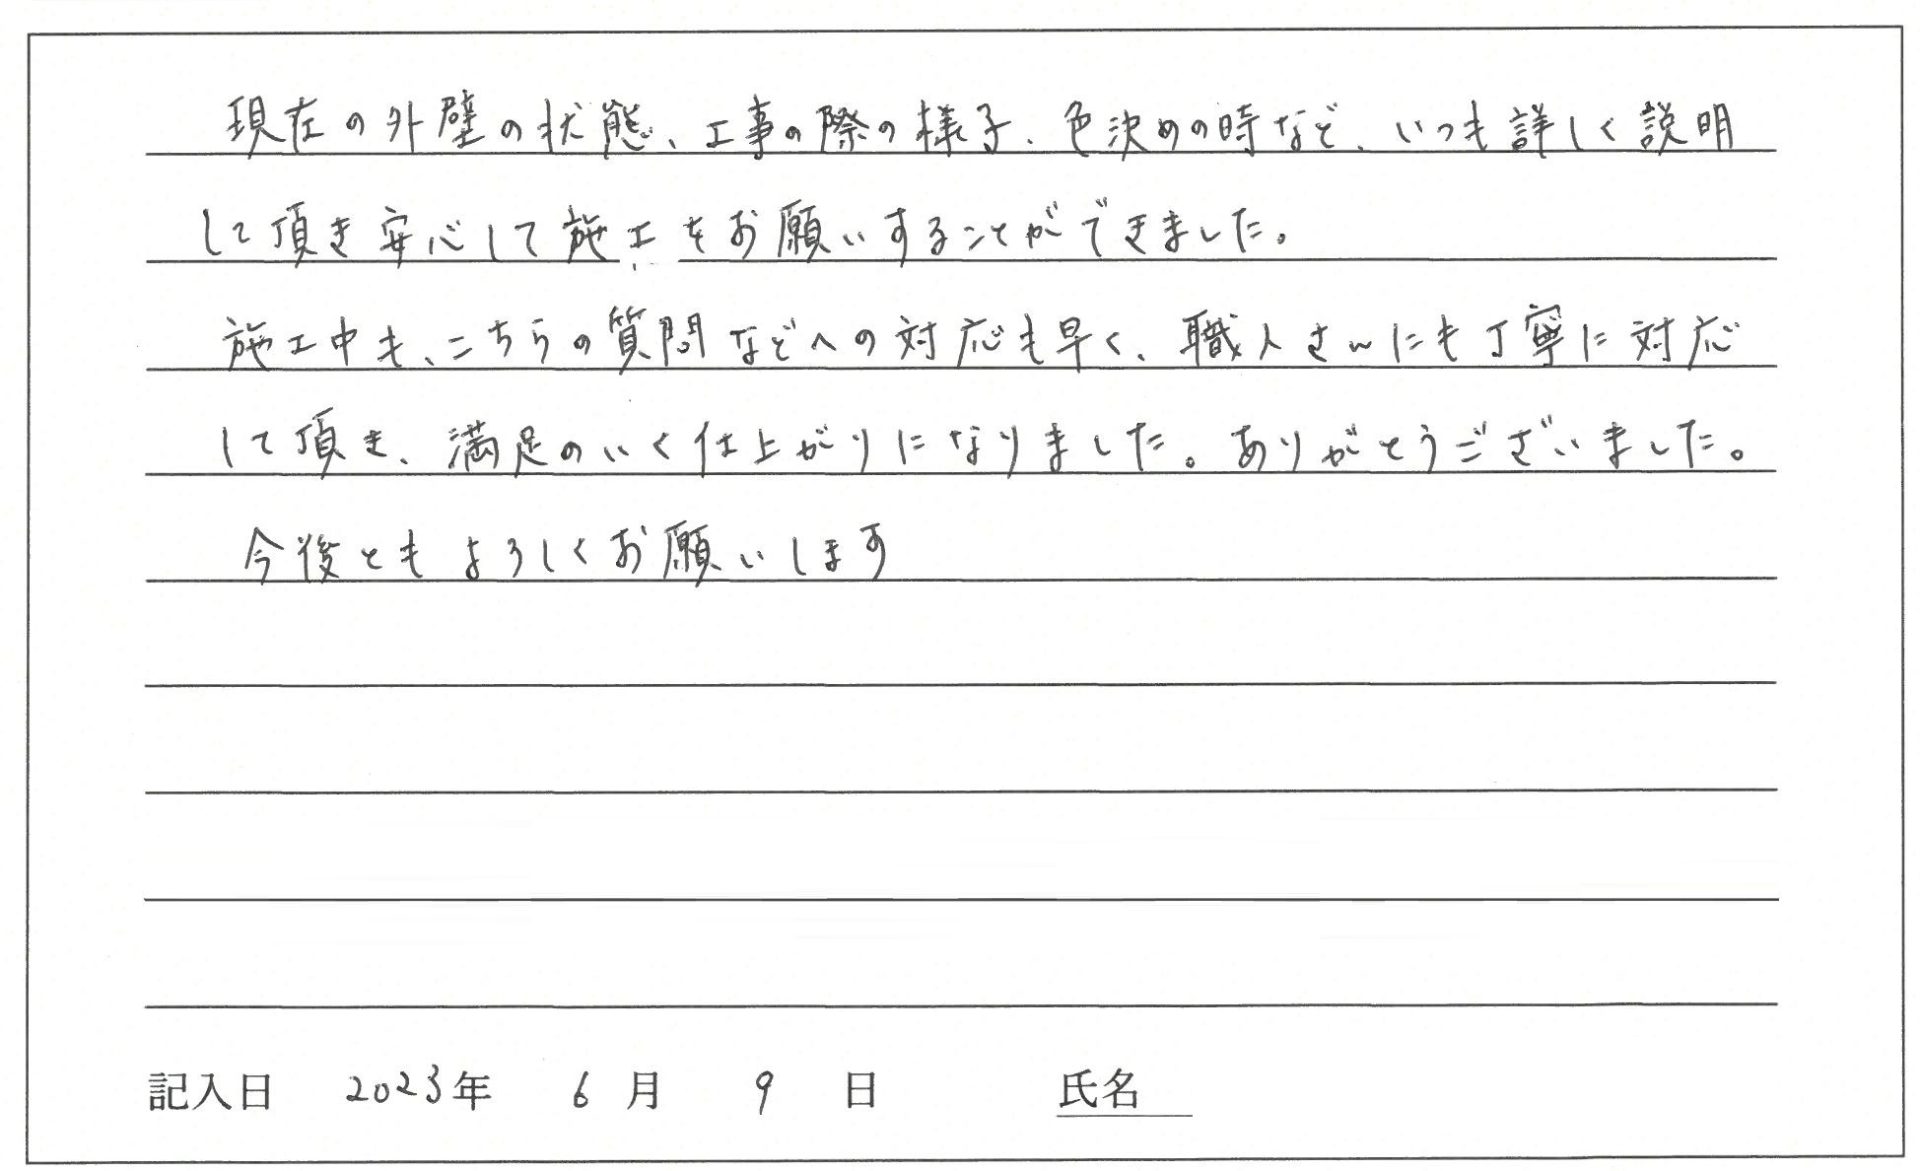 現在の外壁の状態、工事の際の様子、色決めの時など、いつも詳しく説明
して頂き安心して施工をお願いすることができました。
施工中も、こちらの質問などへの対応も早く、職人さんにも丁寧に対応
して頂き、満足のいく仕上がりになりました。ありがとうございました。
今後ともよろしくお願いします
記入日 2023年 6月 9日 氏名